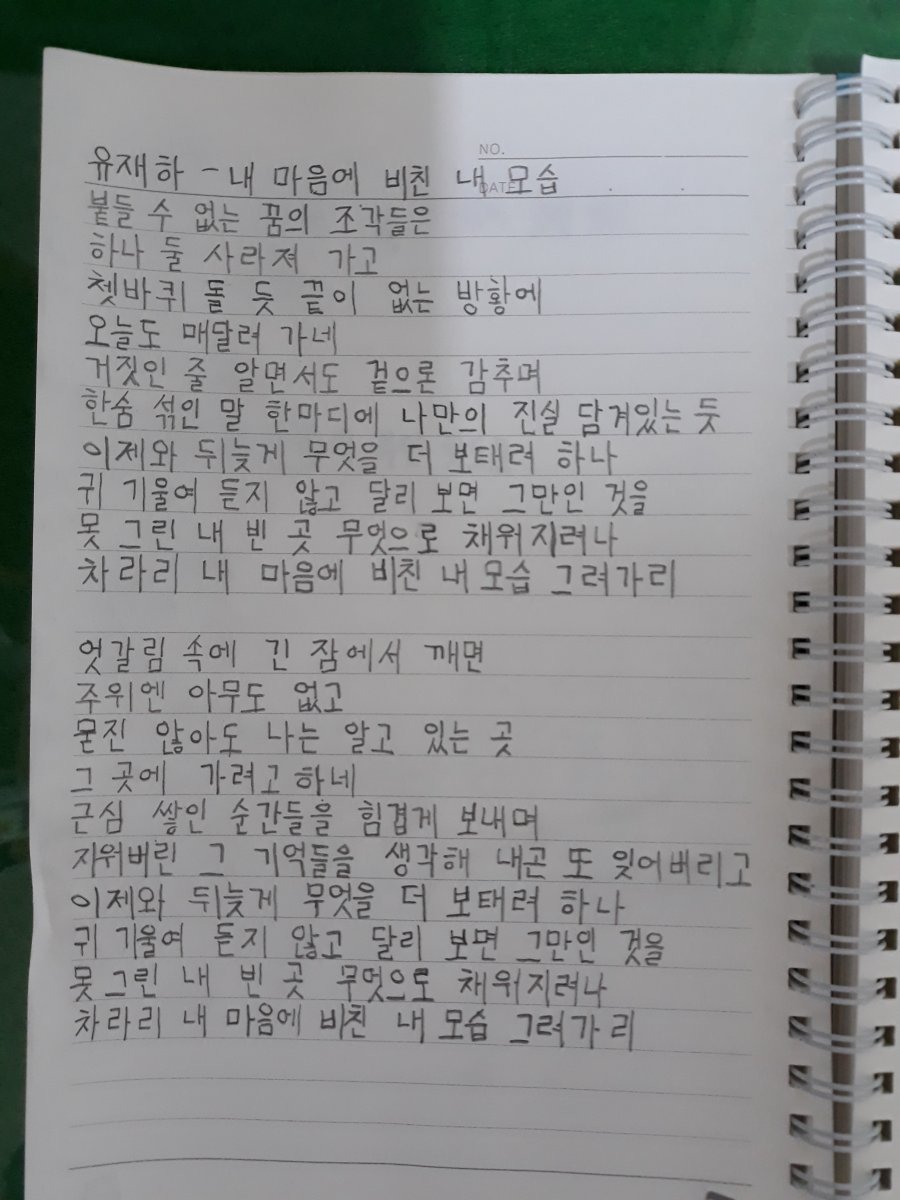 NO.
유재하 - 내 마음에 비친 내 모습
DATE
붙들 수 없는 꿈의 조각들은
하나 둘 사라져 가고
쳇바퀴 돌 듯 끝이 없는 방황에
오늘도 매달려 가네
거짓인 줄 알면서도 겉으론 감추며
한숨 섞인 말 한마디에 나만의 진실 담겨있는 듯
이제와 뒤늦게 무엇을 더 보태려 하나
귀 기울여 듣지 않고 달리 보면 그만인 것을
못 그린 내 빈 곳 무엇으로 채워지려나
차라리 내 마음에 비친 내 모습 그려가리
엇갈림 속에 긴 잠에서 깨면
주위엔 아무도 없고
묻진 않아도 나는 알고 있는 곳
그 곳에 가려고 하네
근심 쌓인 순간들을 힘겹게 보내며
지워버린 그 기억들을 생각해 내곤 또 잊어버리고
이제와 뒤늦게 무엇을 더 보태려 하나
귀 기울여 듣지 않고 달리 보면 그만인 것을
못 그린 내 빈 곳 무엇으로 채워지려나
차라리 내 마음에 비친 내 모습 그려가리